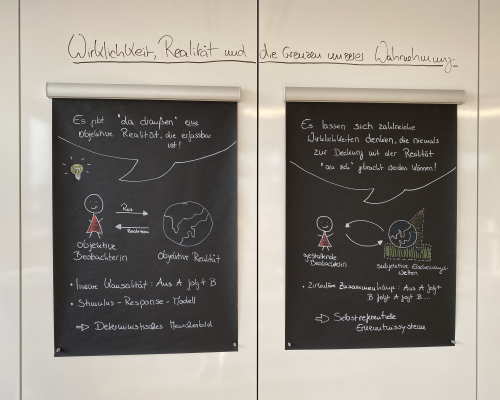 Wirklichkeit, Realität und die Grenzen unseres Wahrnehmung
Es gibt "da draußen" eine
objektive Realität, die erfassbar
ist!
Reiz
Reaktion
Objektive
Beobachterin
Objektive Realität
• lineare Kausalität: Aus A folgt B
• Stimulus-Response-Modell
⇒ Deterministisches Menschenbild
Es lassen sich zahlreiche
Wirklichkeiten denken, die niemals
zur Deckung mit der Realität
"an sich" gebracht werden können!
gestaltende
Beobachterin
subjektive Erscheinungs-
welten
• Zirkuläre Zusammenhänge: Aus A folgt
B folgt A folgt B....
⇒ Selbstreferentielle
Erkenntnissysteme